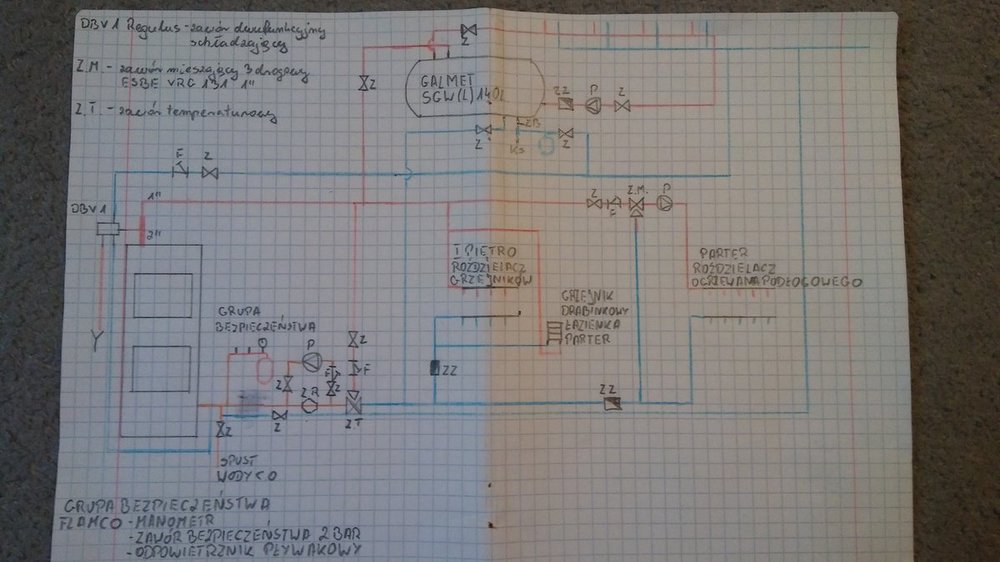 DBV1 Regulus - zawór dwufunkcyjny
schładzający
Z.M. - zawór mieszający 3 drogowy
ESBE VRG 131 1"
Z.T. - zawór temperaturowy
Z
Z
GALMET
SGW(L) 140L
ZZ P Z
Z ZB Z
KS
F Z
DBV1
1"
2"
Z F Z.M. P
I PIĘTRO
ROZDZIELACZ
GRZEJNIKÓW
PARTER
ROZDZIELACZ
OGRZEWANA PODŁOGOWEGO
GRZEJNIK
DRABINKOWY
ŁAZIENKA
PARTER
GRUPA
BEZPIECZEŃSTWA
P
Z
F
F
Z
Z
Z.R
ZZ
ZZ
Z
Z
ZT
SPUST
WODY C.O
GRUPA BEZPIECZEŃSTWA
FLAMCO - MANOMETR
- ZAWÓR BEZPIECZEŃSTWA 2 BAR
- ODPOWIETRZNIK PŁYWAKOWY